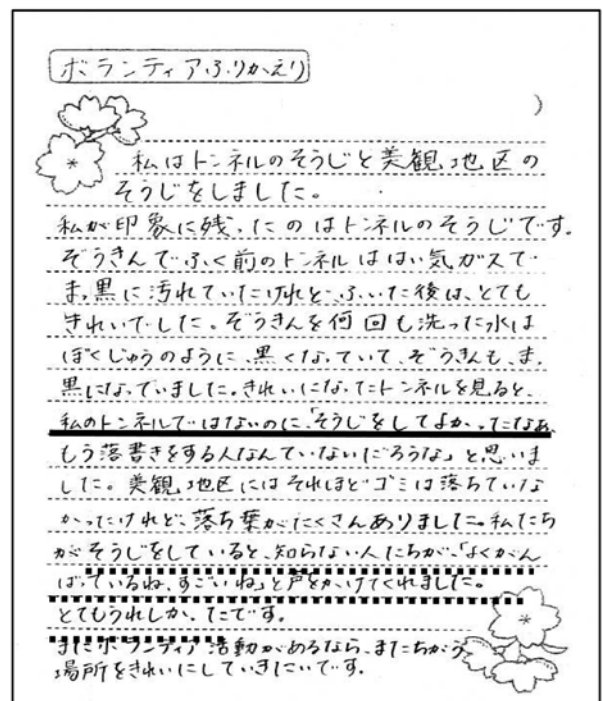 ボランティアふりかえり
)
私はトンネルのそうじと美観地区の
そうじをしました。
私が印象に残ったのはトンネルのそうじです。
ぞうきんでふく前のトンネルははい気ガスで
まっ黒に汚れていたけれど、ふいた後は、とても
きれいでした。ぞうきんを何回も洗った水は
ぼくじゅうのように、黒くなっていて、ぞうきんも、まっ
黒になっていました。きれいになったトンネルを見ると、
私のトンネルではないのに、「そうじをしてよかったなぁ、
もう落書きをする人なんていないだろうな」と思いま
した。美観地区にはそれほどゴミは落ちていな
かったけれど、落ち葉がたくさんありました。私たち
がそうじをしていると、知らない人たちが、「よくがん
ばっているね、すごいね」と声をかけてくれました。
とてもうれしかったです。
またボランティア活動があるなら、またちがう
場所をきれいにしていきたいです。